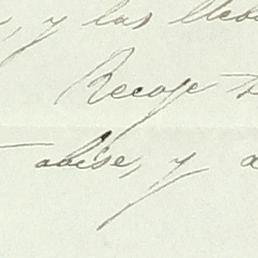 , y las lleb
Recoje
abise, y a